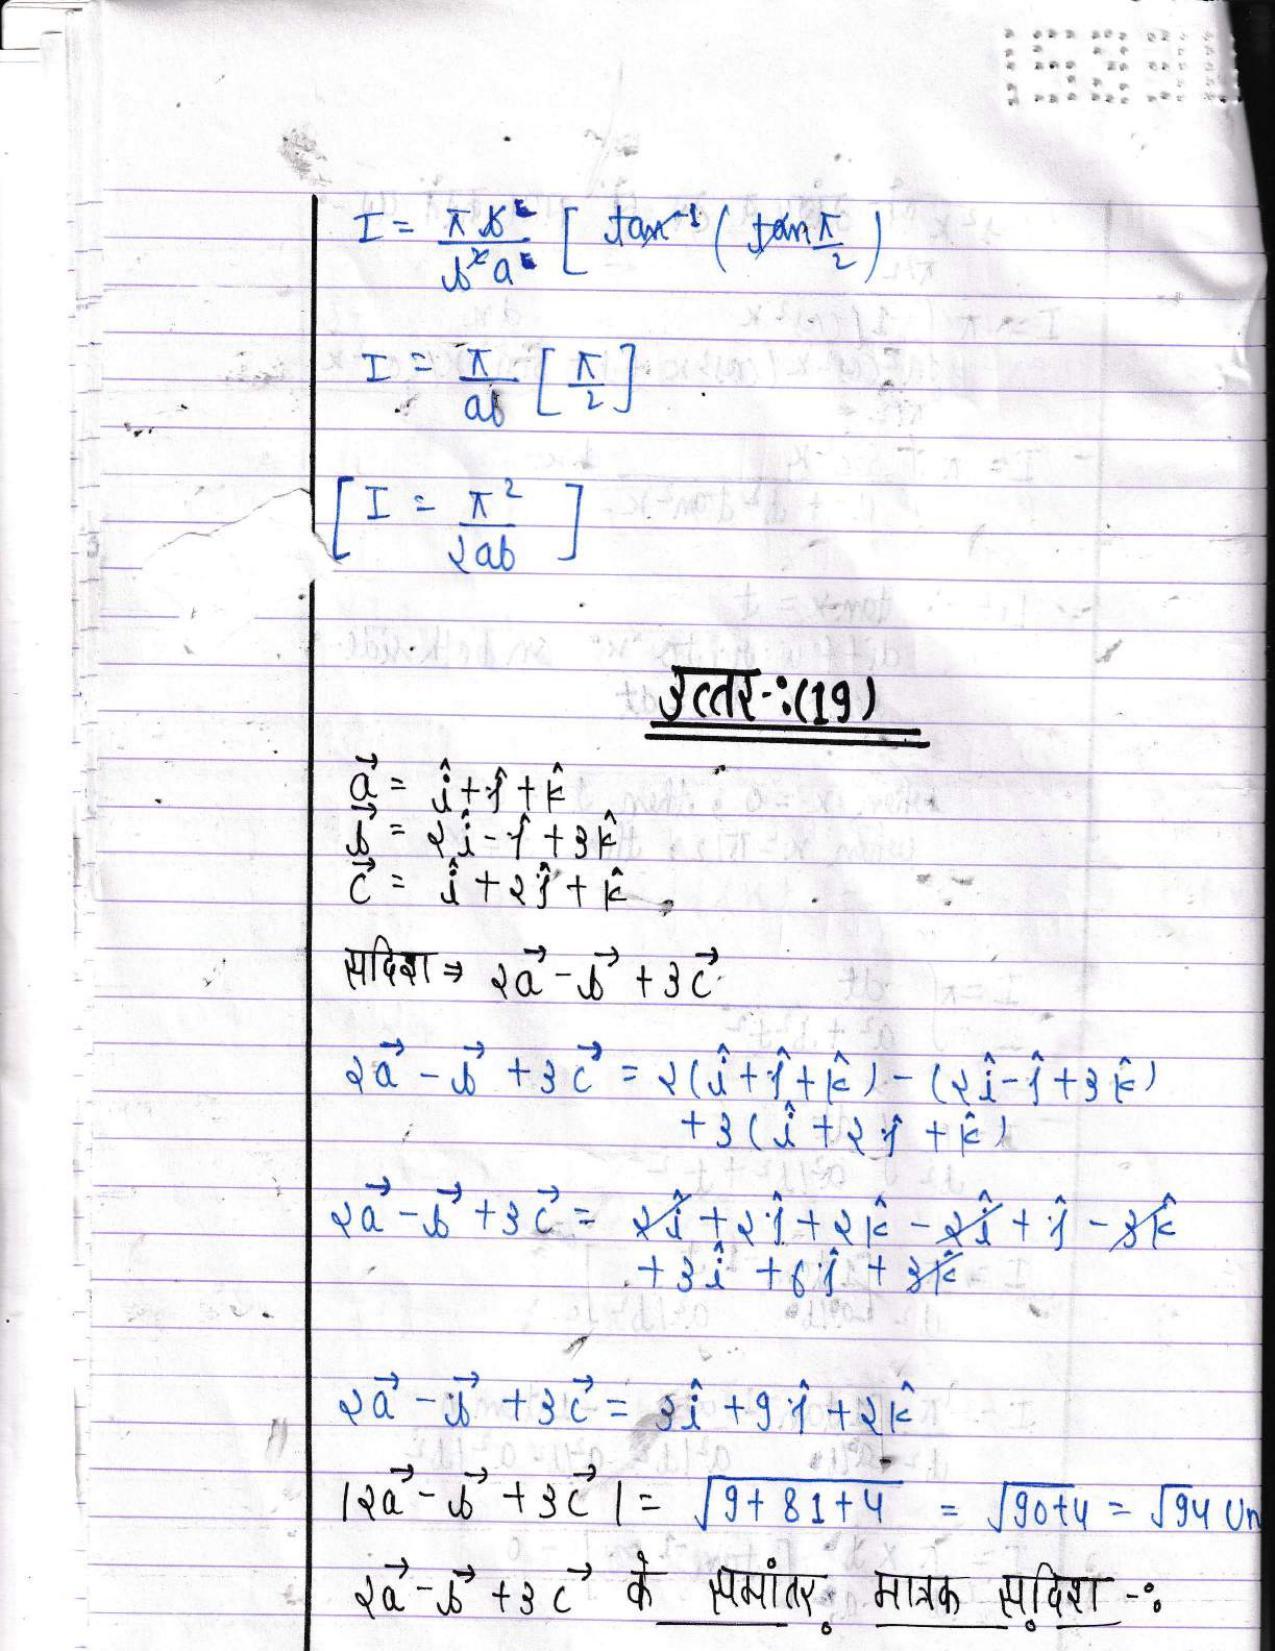 I = πb² / b²a² [ tan⁻¹ ( tan π/2 )
I = π/ab [ π/2 ]
[ I = π² / 2ab ]
उत्तर-:(19)
a⃗ = î + ĵ + k̂
b⃗ = 2î - ĵ + 3k̂
c⃗ = î + 2ĵ + k̂
सदिश ⇒ 2a⃗ - b⃗ + 3c⃗
2a⃗ - b⃗ + 3c⃗ = 2(î + ĵ + k̂) - (2î - ĵ + 3k̂)
+ 3(î + 2ĵ + k̂)
2a⃗ - b⃗ + 3c⃗ = 2î + 2ĵ + 2k̂ - 2î + ĵ - 3k̂
+ 3î + 6ĵ + 3k̂
2a⃗ - b⃗ + 3c⃗ = 3î + 9ĵ + 2k̂
|2a⃗ - b⃗ + 3c⃗| = √(9+81+4) = √(90+4) = √94 Un
2a⃗ - b⃗ + 3c⃗ के समांतर मात्रक सदिश -: